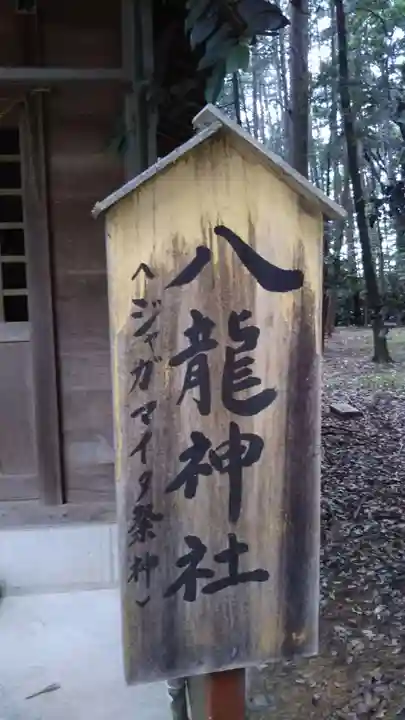 八龍神社
〈ジャガマイタ祭神〉